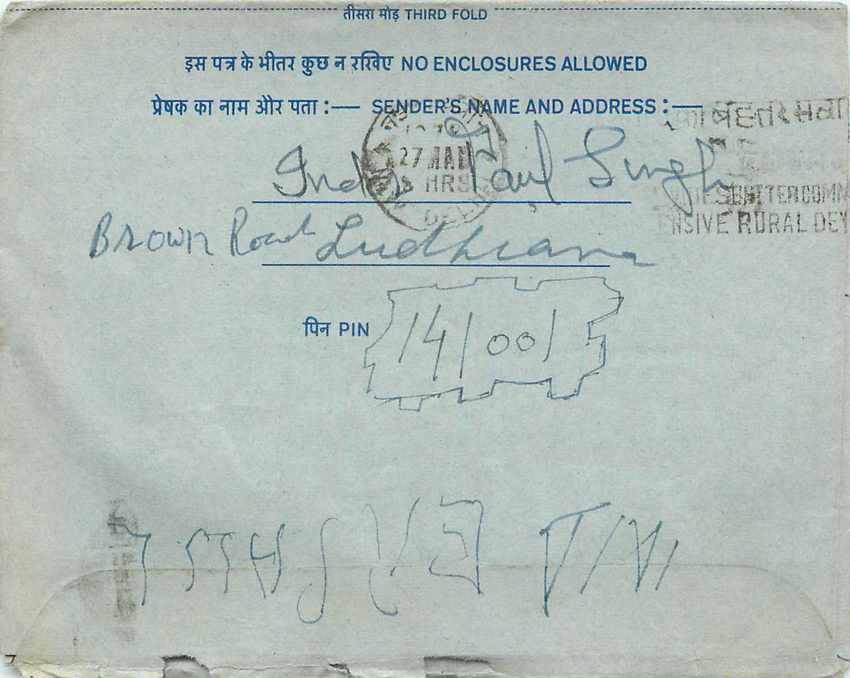 तीसरा मोड़ THIRD FOLD
इस पत्र के भीतर कुछ न रखिए NO ENCLOSURES ALLOWED
प्रेषक का नाम और पता :— SENDER'S NAME AND ADDRESS :—
27 MAR
HRS
Inder Paul Singh
BETTER COMM
ENSIVE RURAL DEV
Brown Road Ludhiana
पिन PIN 141001